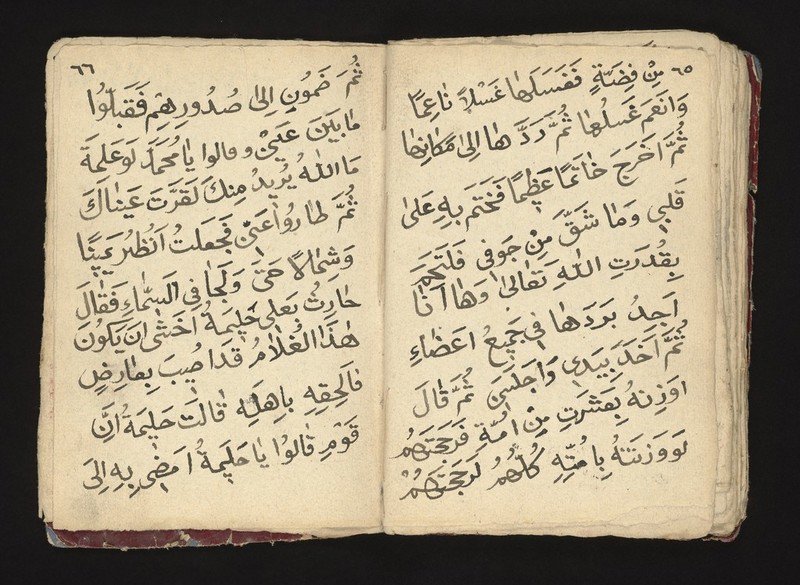 ٦٥
مِنْ فِضَّةٍ فَغَسَلَهَا غَسْلًا نَاعِمًا
وَانَعَمَ غَسْلَهَا ثُمَّ رَدَّ هَا اِلىٰ مَكَانِهَا
ثُمَّ اَخْرَجَ خَاتَمًا عَظِيمًا فَخَتَمَ بِهِ عَلىٰ
قَلْبِى وَمَا شَقَّ مِنْ جَوْفِى فَلْتَحَمَ
بِقُدْرَتِ اللّٰهِ تَعَالىٰ وَهَا اَنَا
اَجِدُ بَرَدَهَا فِى جَمِيعُ اعَضَاءِ
ثُمَّ اَخَدَ بِيَدِى وَاَجْلَسَنِى ثُمَّ قَالَ
اوَزِنْهُ بِعَشَرَتِ مِنْ اُمَّةِ فَرَجَحْتَهُمْ
لَوْ وَزَنْتَهُ بِاُمَّتِهِ كُلُّهُمْ لَرَجَحْتَهُمْ
٦٦
ثُمَّ ضَمُونِ اِلىٰ صُدُورِهِمْ فَقَبَلُوا
مَابَيْنَ عَيْنَىْ وقالوا يَا مُحَمَّدْ لَوْ عَلِمَةَ
مَا اللّٰهُ يُرِيدُ مِنْكَ لَقَرَّتَ عَيْنَاكَ
ثُمَّ طَارُوا عَنِّى فَجَعَلْتُ اَنْظُرُ يَمِينًا
وَشِمَالًا حَتَّى وَلَجُا فِى السَّمَاءِ فَقَالَ
حَارِثُ بَعْلِى حَلِيمَةُ اَخْشٰى انَ يَكُونَ
هٰذَا الْغُلَامُ قَدْ اصُيبَ بِعَارِضٍ
فَالْحِقِهِ بِاهَلِهِ قَالَتْ حَلِيمَةُ اِنَّ
قَوْمِ قَالُوا يَا حَلِيمَةُ اُمَضِى بِهِ اِلىَ